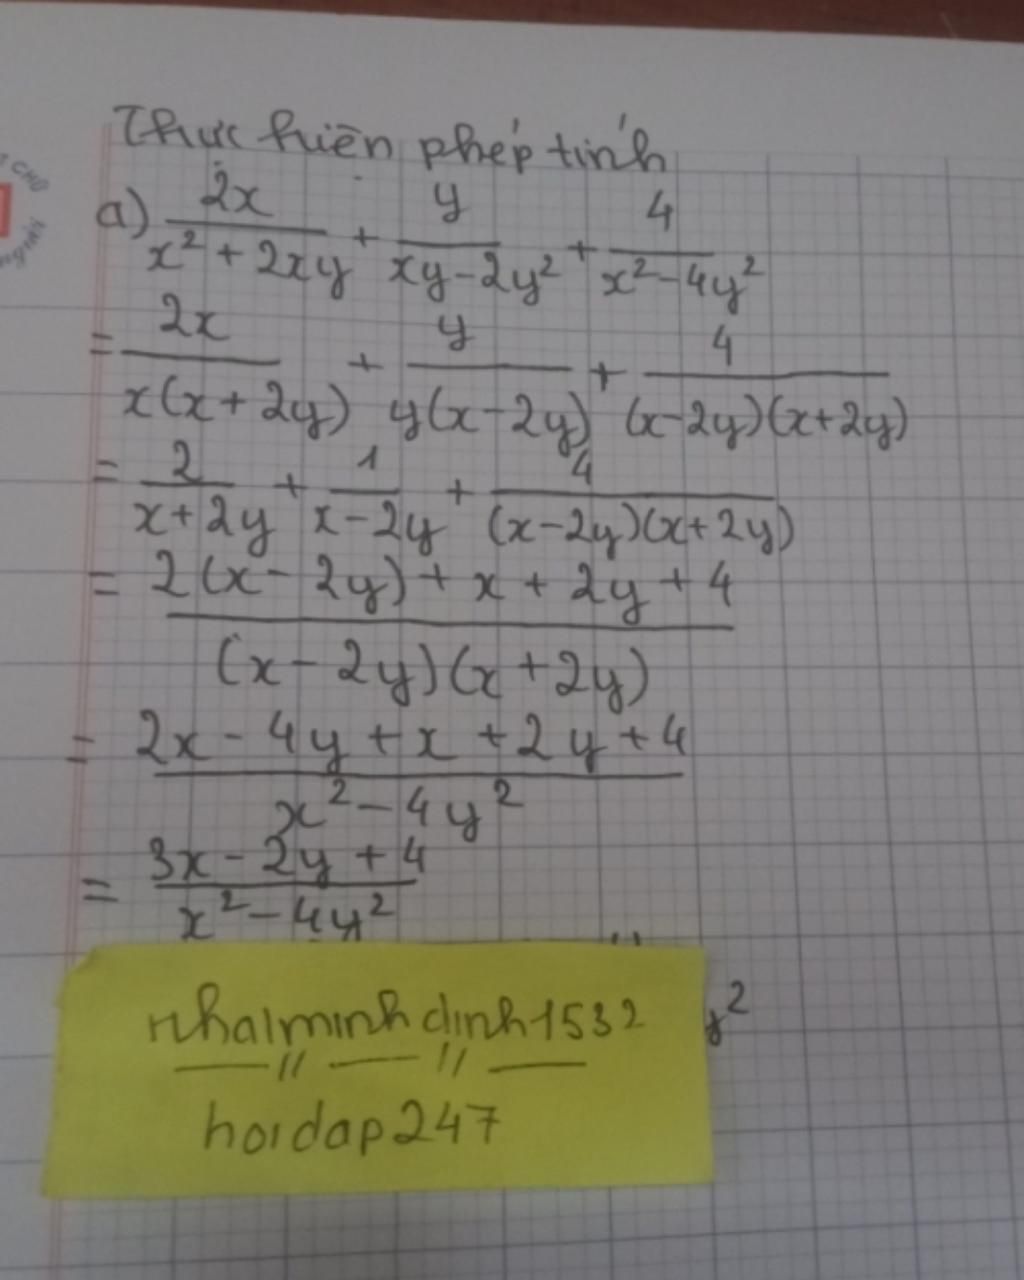 Thực hiện phép tính
a) 2x/(x² + 2xy) + y/(xy - 2y²) + 4/(x² - 4y²)
= 2x/(x(x + 2y)) + y/(y(x - 2y)) + 4/((x - 2y)(x + 2y))
= 2/(x + 2y) + 1/(x - 2y) + 4/((x - 2y)(x + 2y))
= (2(x - 2y) + x + 2y + 4)/((x - 2y)(x + 2y))
= (2x - 4y + x + 2y + 4)/(x² - 4y²)
= (3x - 2y + 4)/(x² - 4y²)
nhalminhdinh1532
hoidap247